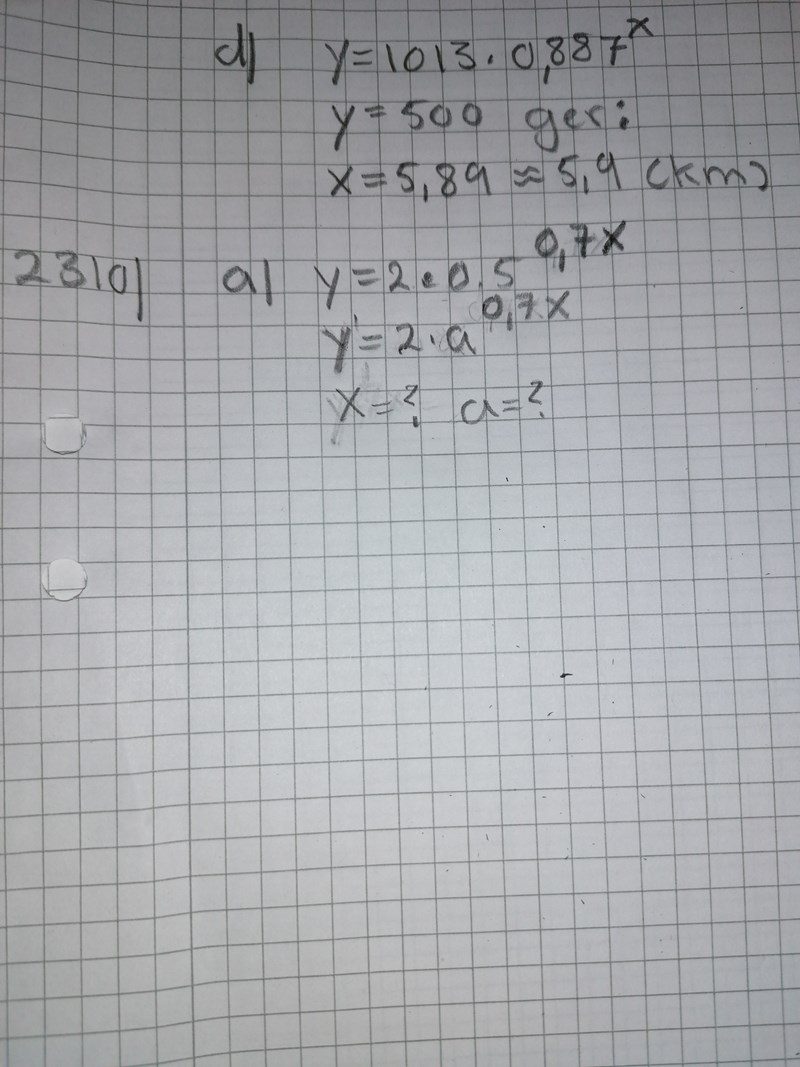 d) y=1013·0,887^x
y=500 ger:
x=5,89≈5,9 (km)
2310) a) y=2·0.5^0,7x
y=2·a^0,7x
x=? a=?